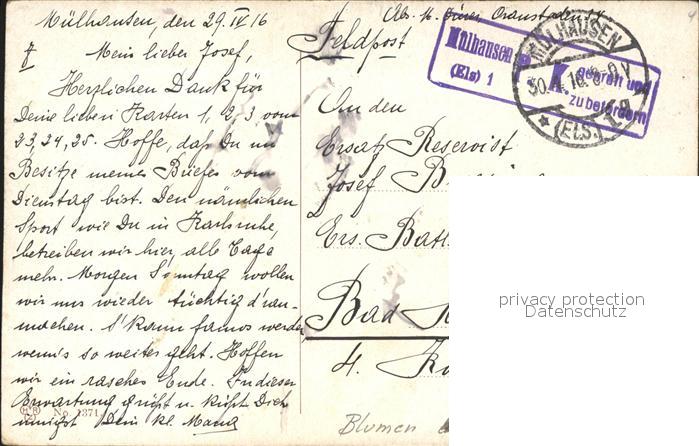 Mülhausen, den 29. IV 16
Mein lieber Josef,
Herzlichen Dank für
Deine lieben Karten 1, 2, 3 vom
23, 24, 25. Hoffe, daß Du im
Besitze meines Briefes vom
Dienstag bist. Den nämlichen
Sport wie Du in Karlsruhe,
betreiben wir hier, alle Tage
mehr. Morgen Sonntag wollen
wir uns wieder tüchtig d'ran-
machen. S'kann famos werden
wenn's so weiter geht. Hoffen
wir ein rasches Ende. In dieser
Erwartung grüßt u. küßt Dich
innigst Dein kl.
No. 1371
Abs. M.
Feldpost
Mülhausen
(Els) 1
geprüft und
zu befördern
MÜLHAUSEN
30. 4. 16. 8-9 V
* (ELS.) 1
An den
Ersatz Reservist
Josef
Ers. Batl.
Bad
4.
privacy protection
Datenschutz
Blumen